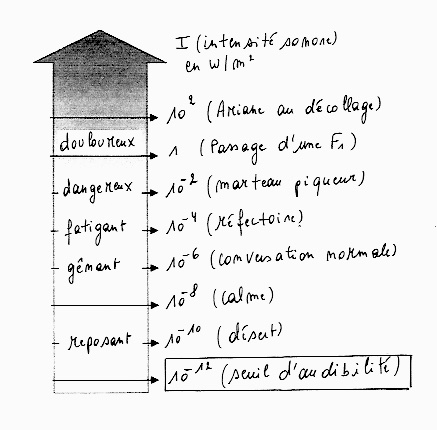 I (intensité sonore)
en W/m²
10² (Ariane au décollage)
douloureux
1 (Passage d'une F1)
dangereux 10⁻² (marteau piqueur)
fatigant 10⁻⁴ (réfectoire?)
gênant 10⁻⁶ (conversation normale)
10⁻⁸ (calme)
reposant 10⁻¹⁰ (désert)
10⁻¹² (seuil d'audibilité)